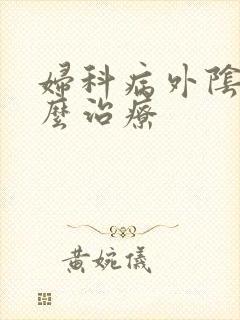 婦科病外陰
麼治療
黄婉儀